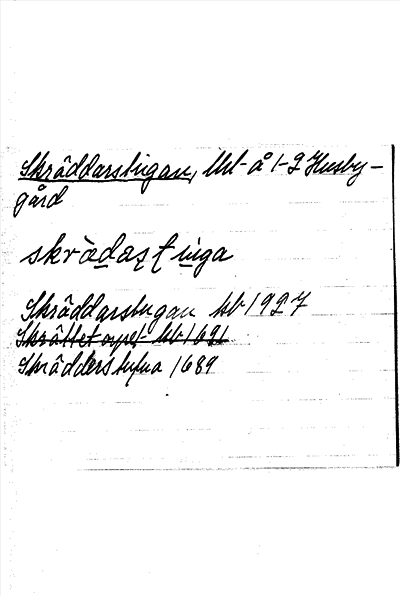 Skräddarstugan, lht å 1-2 Husby-
gård
skrädaṣṭu̇ga
Skräddarstugan kb 1927
Skrättetorpet kb 1691
Skrädderstufua 1689